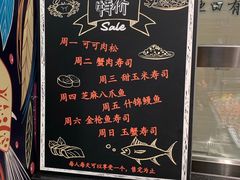 特价
Sale
周一 可可肉松
周二 蟹肉寿司
周三 甜玉米寿司
周四 芝麻八爪鱼
周五 什锦鳗鱼
周六 金枪鱼寿司
周日 玉蟹寿司
每人每天可以享受一个，售完为止